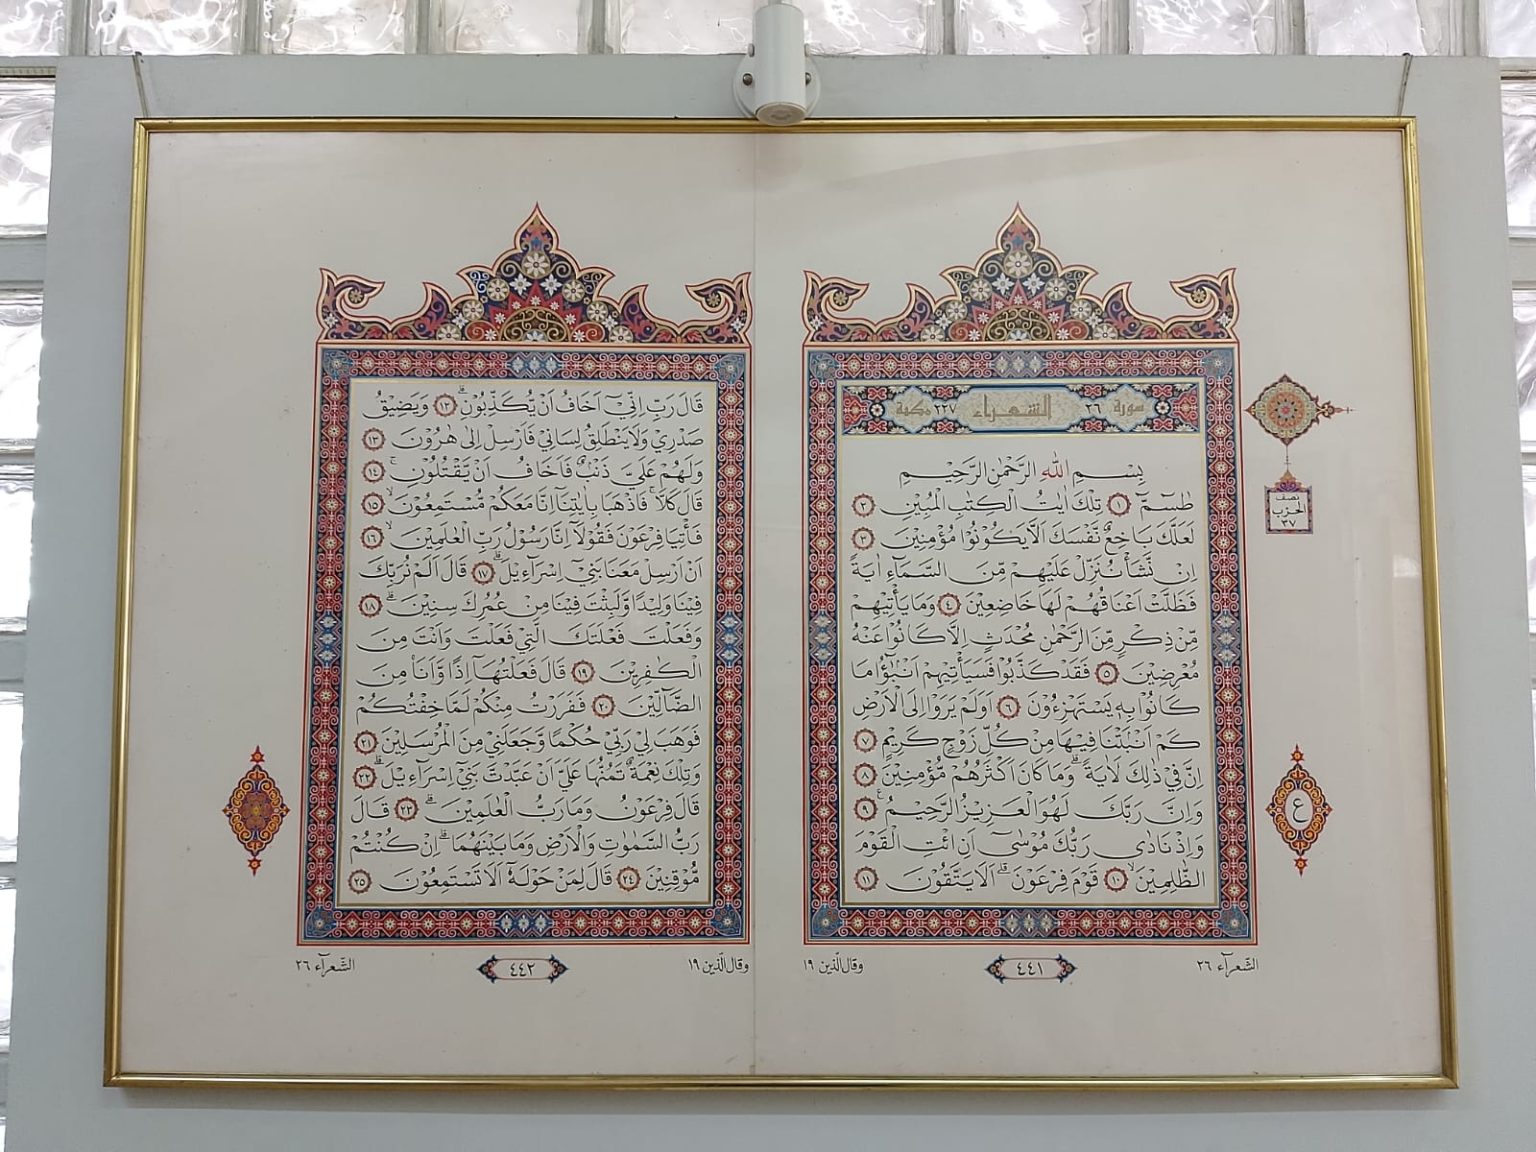 سورة ٢٦ الشعراء ٢٢٧ مكية
بِسْمِ اللّٰهِ الرَّحْمٰنِ الرَّحِيْمِ
طٰسٓمّٓ ۝١ تِلْكَ اٰيٰتُ الْكِتٰبِ الْمُبِيْنِ ۝٢
لَعَلَّكَ بَاخِعٌ نَّفْسَكَ اَلَّا يَكُوْنُوْا مُؤْمِنِيْنَ ۝٣
اِنْ نَّشَأْ نُنَزِّلْ عَلَيْهِمْ مِّنَ السَّمَآءِ اٰيَةً
فَظَلَّتْ اَعْنَاقُهُمْ لَهَا خَاضِعِيْنَ ۝٤ وَمَا يَأْتِيْهِمْ
مِّنْ ذِكْرٍ مِّنَ الرَّحْمٰنِ مُحْدَثٍ اِلَّا كَانُوْا عَنْهُ
مُعْرِضِيْنَ ۝٥ فَقَدْ كَذَّبُوْا فَسَيَأْتِيْهِمْ اَنْۢبٰٓؤُا مَا
كَانُوْا بِهٖ يَسْتَهْزِءُوْنَ ۝٦ اَوَلَمْ يَرَوْا اِلَى الْاَرْضِ
كَمْ اَنْۢبَتْنَا فِيْهَا مِنْ كُلِّ زَوْجٍ كَرِيْمٍ ۝٧
اِنَّ فِيْ ذٰلِكَ لَاٰيَةً ۗ وَمَا كَانَ اَكْثَرُهُمْ مُّؤْمِنِيْنَ ۝٨
وَاِنَّ رَبَّكَ لَهُوَ الْعَزِيْزُ الرَّحِيْمُ ۝٩
وَاِذْ نَادٰى رَبُّكَ مُوْسٰٓى اَنِ ائْتِ الْقَوْمَ
الظّٰلِمِيْنَ ۙ ۝١٠ قَوْمَ فِرْعَوْنَ ۗ اَلَا يَتَّقُوْنَ ۝١١
نصف
الحزب
٣٧
ع
الشّعرآء ٢٦
٤٤١
وقال الّذين ١٩
قَالَ رَبِّ اِنِّيْٓ اَخَافُ اَنْ يُّكَذِّبُوْنِ ۗ ۝١٢ وَيَضِيْقُ
صَدْرِيْ وَلَا يَنْطَلِقُ لِسَانِيْ فَاَرْسِلْ اِلٰى هٰرُوْنَ ۝١٣
وَلَهُمْ عَلَيَّ ذَنْۢبٌ فَاَخَافُ اَنْ يَّقْتُلُوْنِ ۚ ۝١٤
قَالَ كَلَّا ۚ فَاذْهَبَا بِاٰيٰتِنَآ اِنَّا مَعَكُمْ مُّسْتَمِعُوْنَ ۙ ۝١٥
فَأْتِيَا فِرْعَوْنَ فَقُوْلَآ اِنَّا رَسُوْلُ رَبِّ الْعٰلَمِيْنَ ۙ ۝١٦
اَنْ اَرْسِلْ مَعَنَا بَنِيْٓ اِسْرَآءِيْلَ ۗ ۝١٧ قَالَ اَلَمْ نُرَبِّكَ
فِيْنَا وَلِيْدًا وَّلَبِثْتَ فِيْنَا مِنْ عُمُرِكَ سِنِيْنَ ۗ ۝١٨
وَفَعَلْتَ فَعْلَتَكَ الَّتِيْ فَعَلْتَ وَاَنْتَ مِنَ
الْكٰفِرِيْنَ ۝١٩ قَالَ فَعَلْتُهَآ اِذًا وَّاَنَا۠ مِنَ
الضَّآلِّيْنَ ۝٢٠ فَفَرَرْتُ مِنْكُمْ لَمَّا خِفْتُكُمْ
فَوَهَبَ لِيْ رَبِّيْ حُكْمًا وَّجَعَلَنِيْ مِنَ الْمُرْسَلِيْنَ ۝٢١
وَتِلْكَ نِعْمَةٌ تَمُنُّهَا عَلَيَّ اَنْ عَبَّدْتَّ بَنِيْٓ اِسْرَآءِيْلَ ۗ ۝٢٢
قَالَ فِرْعَوْنُ وَمَا رَبُّ الْعٰلَمِيْنَ ۗ ۝٢٣ قَالَ
رَبُّ السَّمٰوٰتِ وَالْاَرْضِ وَمَا بَيْنَهُمَا ۗ اِنْ كُنْتُمْ
مُّوْقِنِيْنَ ۝٢٤ قَالَ لِمَنْ حَوْلَهٗٓ اَلَا تَسْتَمِعُوْنَ ۝٢٥
وقال الّذين ١٩
٤٤٢
الشّعرآء ٢٦